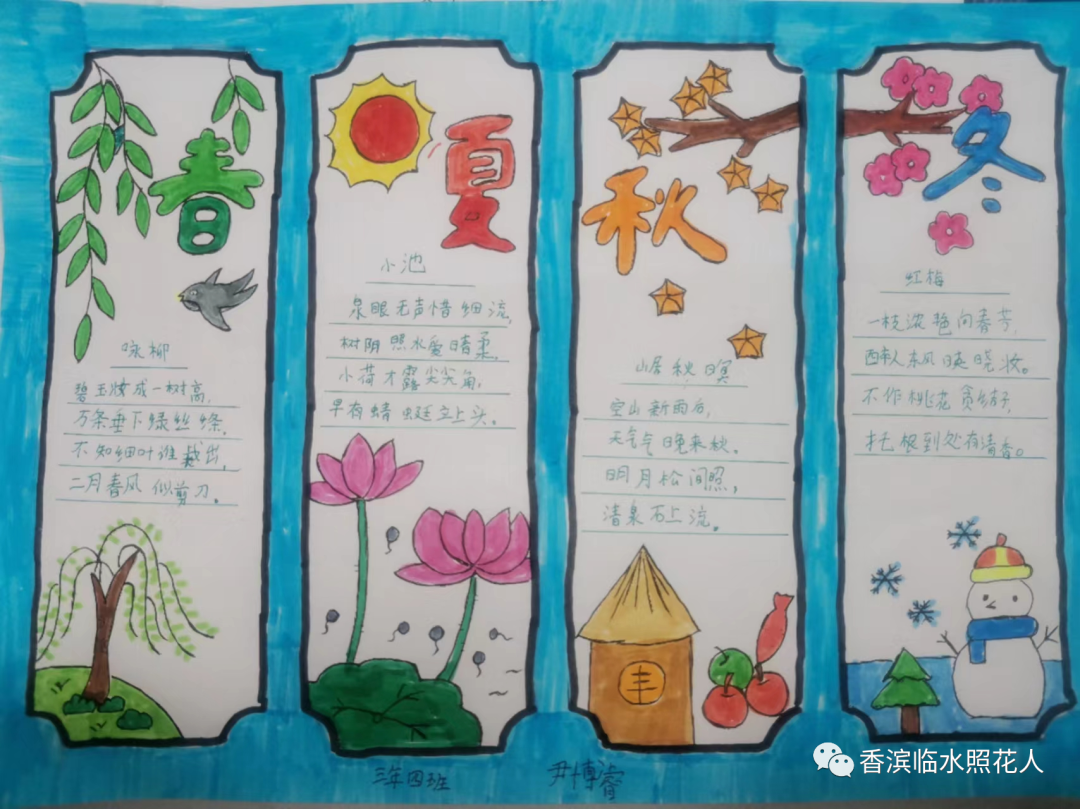 春
咏柳
碧玉妆成一树高,
万条垂下绿丝绦,
不知细叶谁裁出,
二月春风似剪刀。
夏
小池
泉眼无声惜细流,
树阴照水爱晴柔,
小荷才露尖尖角,
早有蜻蜓立上头。
秋
山居秋暝
空山新雨后,
天气气晚来秋。
明月松间照,
清泉石上流。
冬
虹梅
一枝浓艳向春芳,
东风晓妆。
不作桃花贪结子,
托根到处有清香。
丰
三年四班 尹博睿
香滨临水照花人